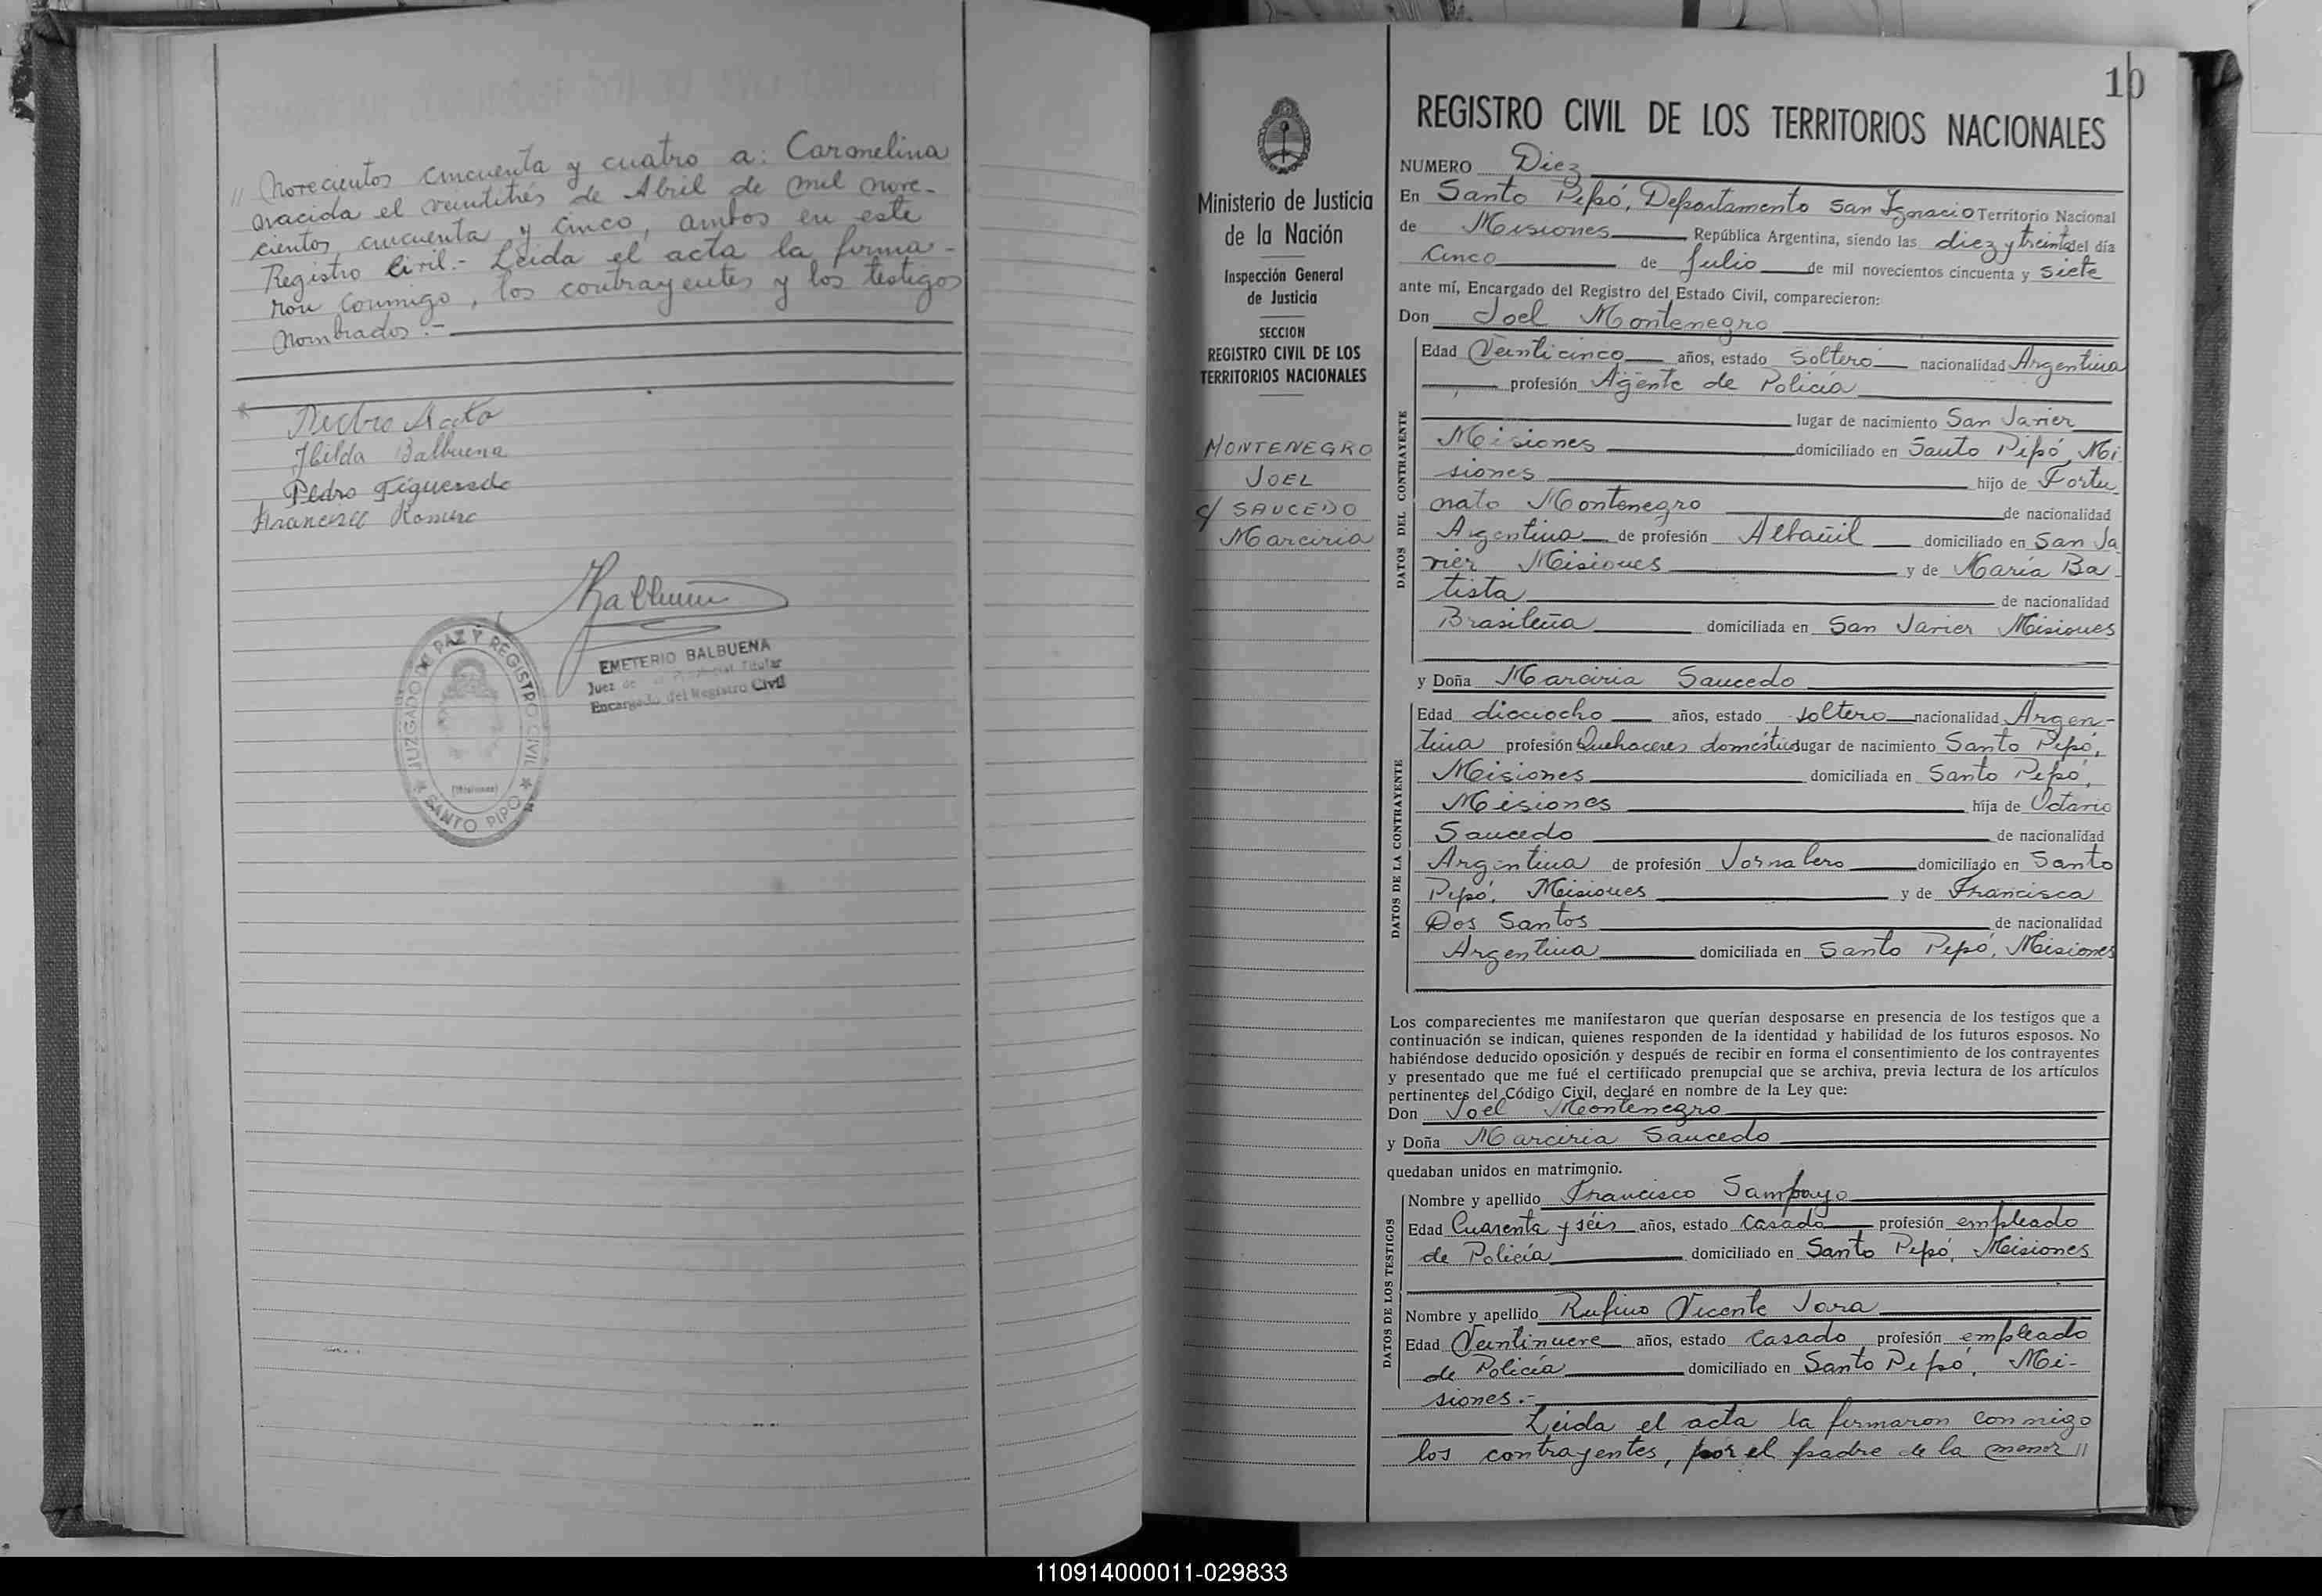 // Novecientos cincuenta y cuatro a: Carmelina
nacida el veintitrés de Abril de mil nove-
cientos cincuenta y cinco, ambos en este
Registro Civil.- Leida el acta la firma-
ron conmigo, los contrayentes y los testigos
nombrados.-
Hilda Balbuena
Pedro Figueredo
Balbuena
EMETERIO BALBUENA
Juez de Titular
Encargado del Registro Civil
JUZGADO DE PAZ Y REGISTRO CIVIL
(Misiones)
SANTO PIPO
10
Ministerio de Justicia
de la Nación
Inspección General
de Justicia
SECCION
REGISTRO CIVIL DE LOS
TERRITORIOS NACIONALES
MONTENEGRO
JOEL
c/ SAUCEDO
Marciria
REGISTRO CIVIL DE LOS TERRITORIOS NACIONALES
NUMERO Diez
En Santo Pipó, Departamento San Ignacio Territorio Nacional
de Misiones República Argentina, siendo las diez y treinta del día
Cinco de Julio de mil novecientos cincuenta y siete
ante mí, Encargado del Registro del Estado Civil, comparecieron:
Don Joel Montenegro
DATOS DEL CONTRAYENTE
Edad Veinticinco años, estado soltero nacionalidad Argentina
profesión Agente de Policía
lugar de nacimiento San Javier
Misiones domiciliado en Santo Pipó, Mi-
siones hijo de Fortu
nato Montenegro de nacionalidad
Argentina de profesión Albañil domiciliado en San Ja
vier Misiones y de María Ba-
tista de nacionalidad
Brasileña domiciliada en San Javier Misiones
y Doña Marciria Saucedo
DATOS DE LA CONTRAYENTE
Edad dieciocho años, estado soltero nacionalidad Argen-
tina profesión Quehaceres domésticos lugar de nacimiento Santo Pipó,
Misiones domiciliada en Santo Pipó,
Misiones hija de Octavio
Saucedo de nacionalidad
Argentina de profesión Jornalero domiciliado en Santo
Pipó, Misiones y de Francisca
Dos Santos de nacionalidad
Argentina domiciliada en Santo Pipó, Misiones
Los comparecientes me manifestaron que querían desposarse en presencia de los testigos que a
continuación se indican, quienes responden de la identidad y habilidad de los futuros esposos. No
habiéndose deducido oposición y después de recibir en forma el consentimiento de los contrayentes
y presentado que me fué el certificado prenupcial que se archiva, previa lectura de los artículos
pertinentes del Código Civil, declaré en nombre de la Ley que:
Don Joel Montenegro
y Doña Marciria Saucedo
quedaban unidos en matrimonio.
DATOS DE LOS TESTIGOS
Nombre y apellido Francisco Sampayo
Edad Cuarenta y séis años, estado Casado profesión empleado
de Policía domiciliado en Santo Pipó, Misiones
Nombre y apellido Rufino Vicente Jara
Edad Veintinueve años, estado Casado profesión empleado
de Policía domiciliado en Santo Pipó, Mi-
siones.-
Leida el acta la firmaron conmigo
los contrayentes, por el padre de la menor //
110914000011-029833